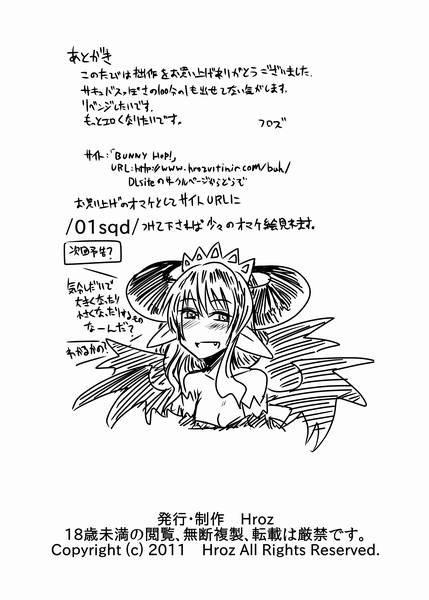 あとがき
このたびは拙作をお買い上げありがとうございました。
サキュバスっぽさの100分の1も出せてない気がします。
リベンジしたいです。
もっとエロくなりたいです。
フロズ
サイト:「BUNNY HOP!」
URL:http://www.hrozvitinir.com/buh/
DLsiteのサークルページからどうぞ
お買い上げのオマケとしてサイトURLに
/01sqd/つけて下されば少々のオマケ絵見れます。
次回予告?
気分しだいで
大きくなったり
小さくなったりするもの
なーんだ?
わかるかの?
発行・制作 Hroz
18歳未満の閲覧、無断複製、転載は厳禁です。
Copyright (c) 2011 Hroz All Rights Reserved.